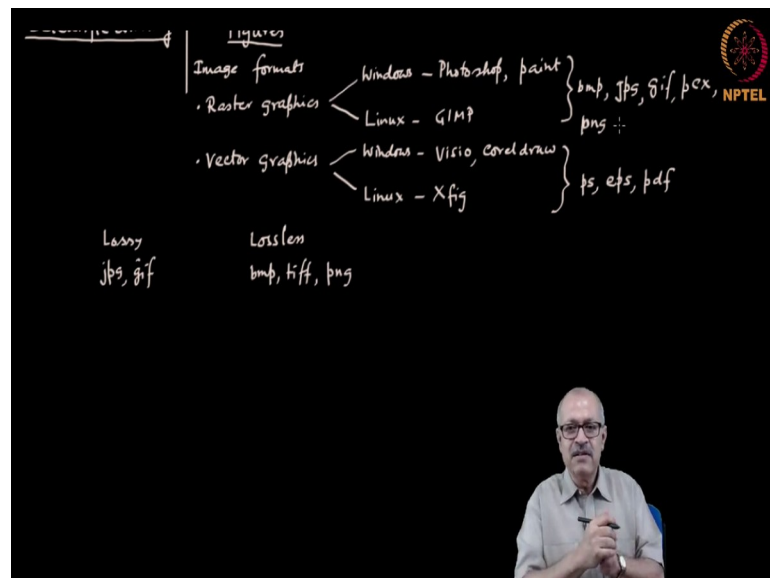 Figures
Image formats
. Raster graphics
Windows - Photoshop, paint
Linux - GIMP
bmp, jpg, gif, pcx,
png
. Vector graphics
Windows - Visio, Corel draw
Linux - Xfig
ps, eps, pdf
Lossy
Lossless
jpg, gif
bmp, tiff, png
NPTEL